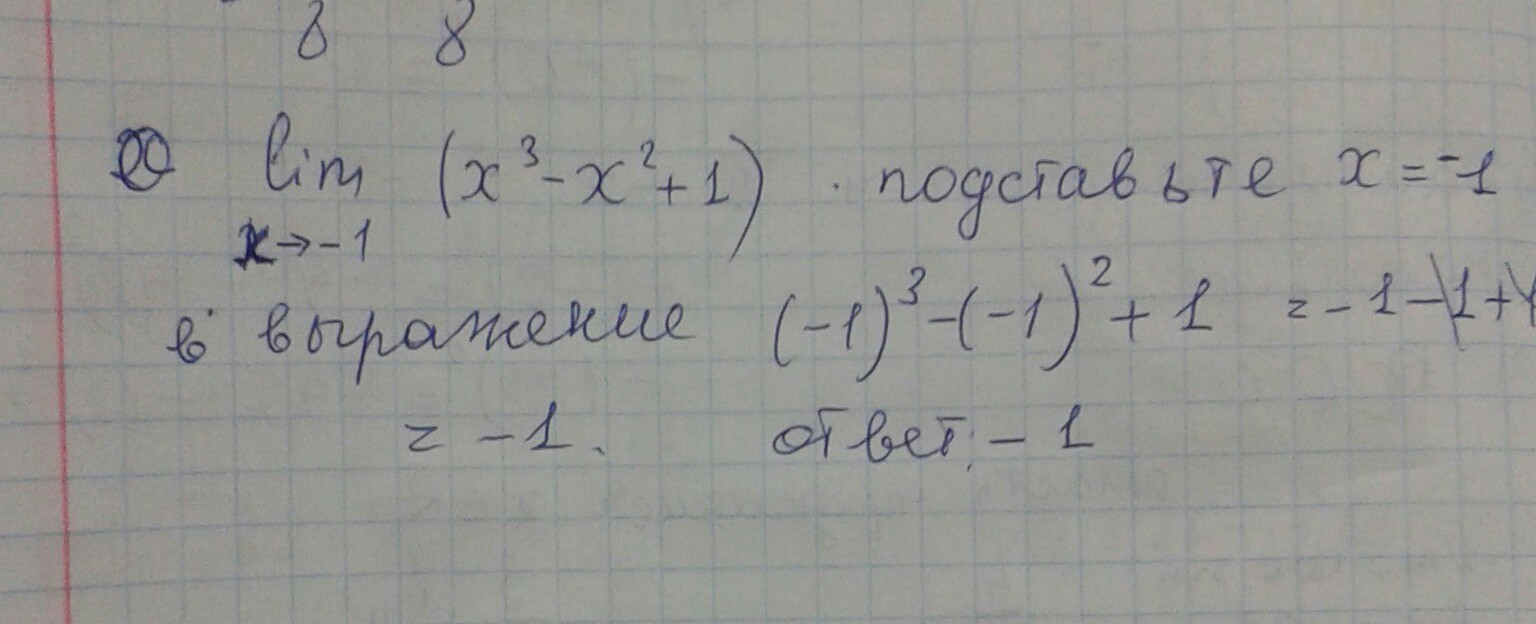 8 8
lim (x³-x²+1) . подставьте x=-1
x→-1
в выражение (-1)³-(-1)²+1 =-1-1+1
= -1. ответ: -1